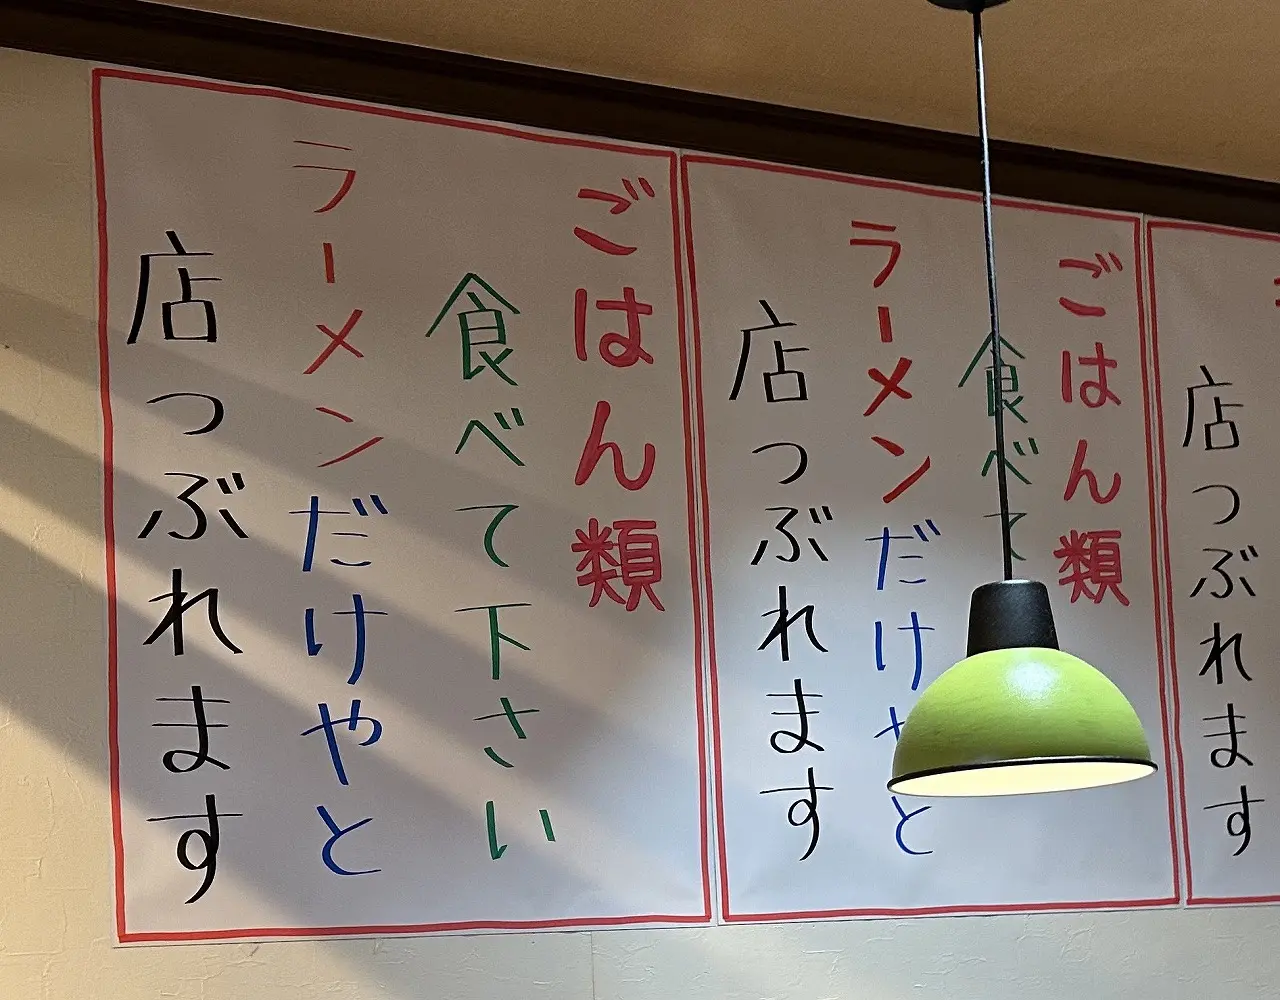 ごはん類
食べて下さい
ラーメンだけやと
店つぶれます
ごはん類
食べて
ラーメンだけやと
店つぶれます
店つぶれます